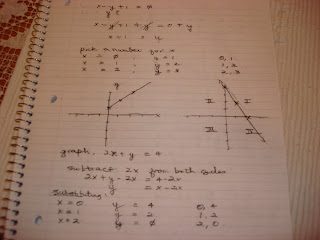 x-y+1 = 0
x-y+1+y = 0+y
x+1 = y
pick a number for x
x = 0, y = 1 0, 1
x = 1, y = 2 1, 2
x = 2, y = 3 2, 3
y
II I
III IV
graph, 2x + y = 4
subtract 2x from both sides
2x + y - 2x = 4-2x
y = 4-2x
Substituting:
x = 0 y = 4 0, 4
x = 1 y = 2 1, 2
x = 2 y = 0 2, 0